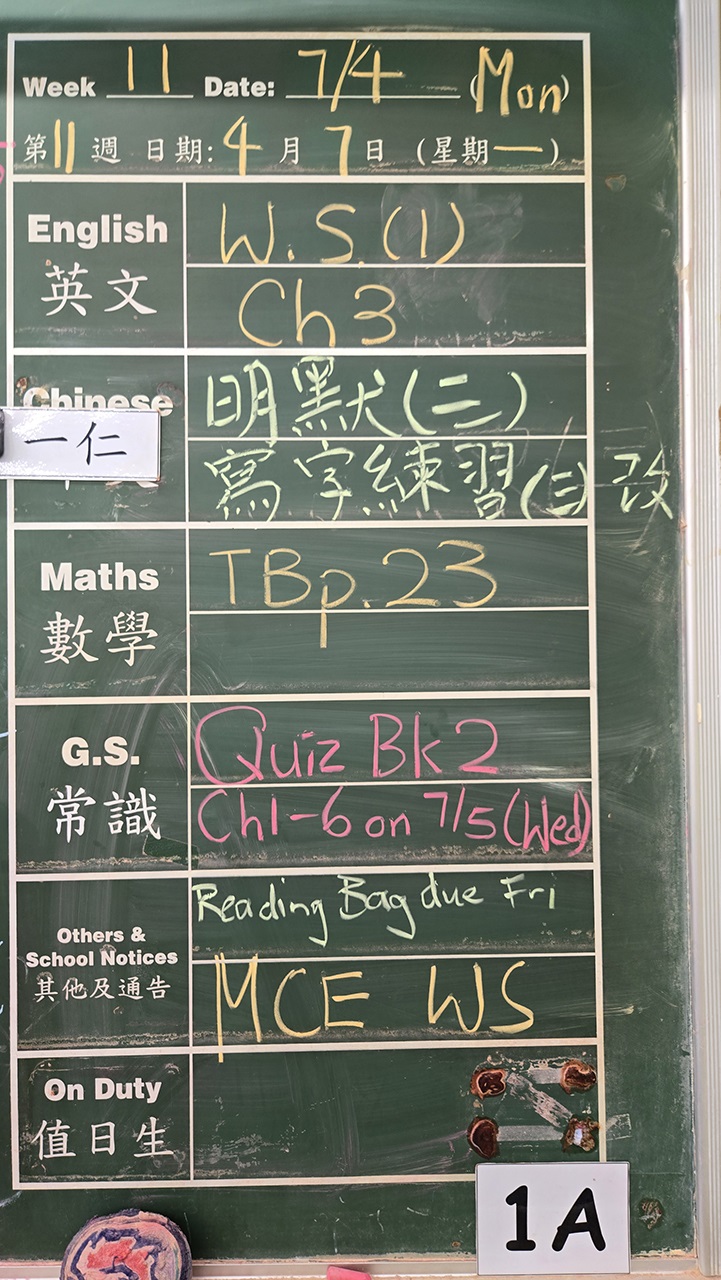 Week 11 Date: 7/4 (Mon)
第11週 日期: 4月7日 (星期一)
English
英文
W.S.(1)
Ch 3
Chinese
一仁
明默(二)
寫字練習(三)改
Maths
數學
TBp.23
G.S.
常識
Quiz Bk 2
Ch1-6 on 7/5(Wed)
Others &
School Notices
其他及通告
Reading Bag due Fri
MCE WS
On Duty
值日生
1A